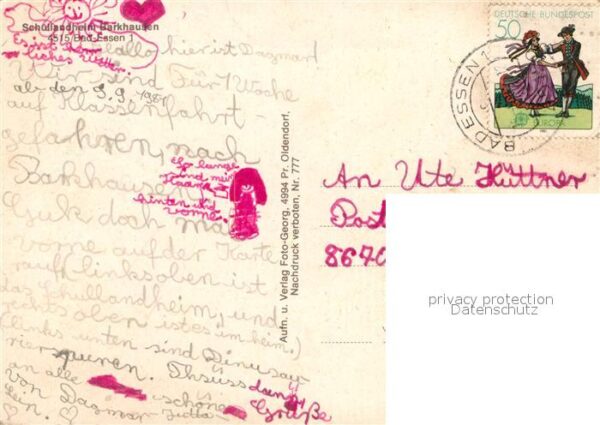 Schullandheim Barkhausen
4515 Bad Essen 1
Hallo, hier ist Dagmar!
Wir sind Für 1 Woche
als den 9.9.1981
auf Klassenfahrt
gefahren, nach
Barkhausen
Guk doch mal
vorne auf der Karte
auf links oben ist
das Schullandheim, und
rechts oben ist es im heim.
(Links unten sind Dinusau
rierspuren. Thsüss
an alle schöne Grüße
von Dagmar
So lange
sind mei
Haare
hinten und
vorne.
Aufn. u. Verlag Foto-Georg, 4994 Pr. Oldendorf.
Nachdruck verboten, Nr. 777
DEUTSCHE BUNDESPOST
50
EUROPA
BAD ESSEN 1
An Ute Hüttner
Post
8670
privacy protection
Datenschutz